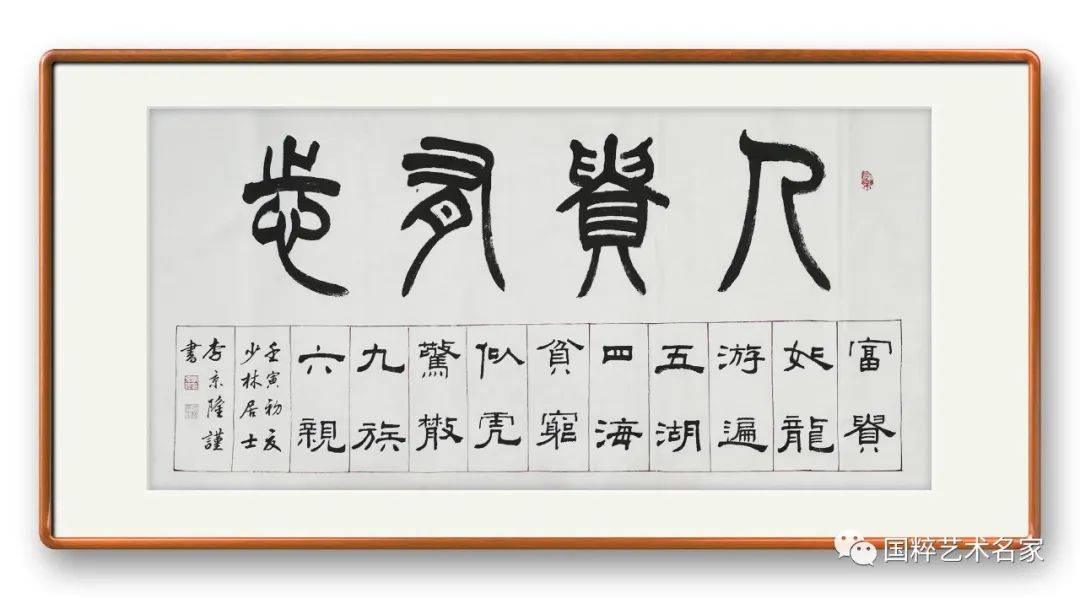 人貴有志
富貴
如龍
游遍
五湖
四海
貧窮
似虎
驚散
九族
六親
壬寅初夏
少林居士
李京隆謹
書
国粹艺术名家